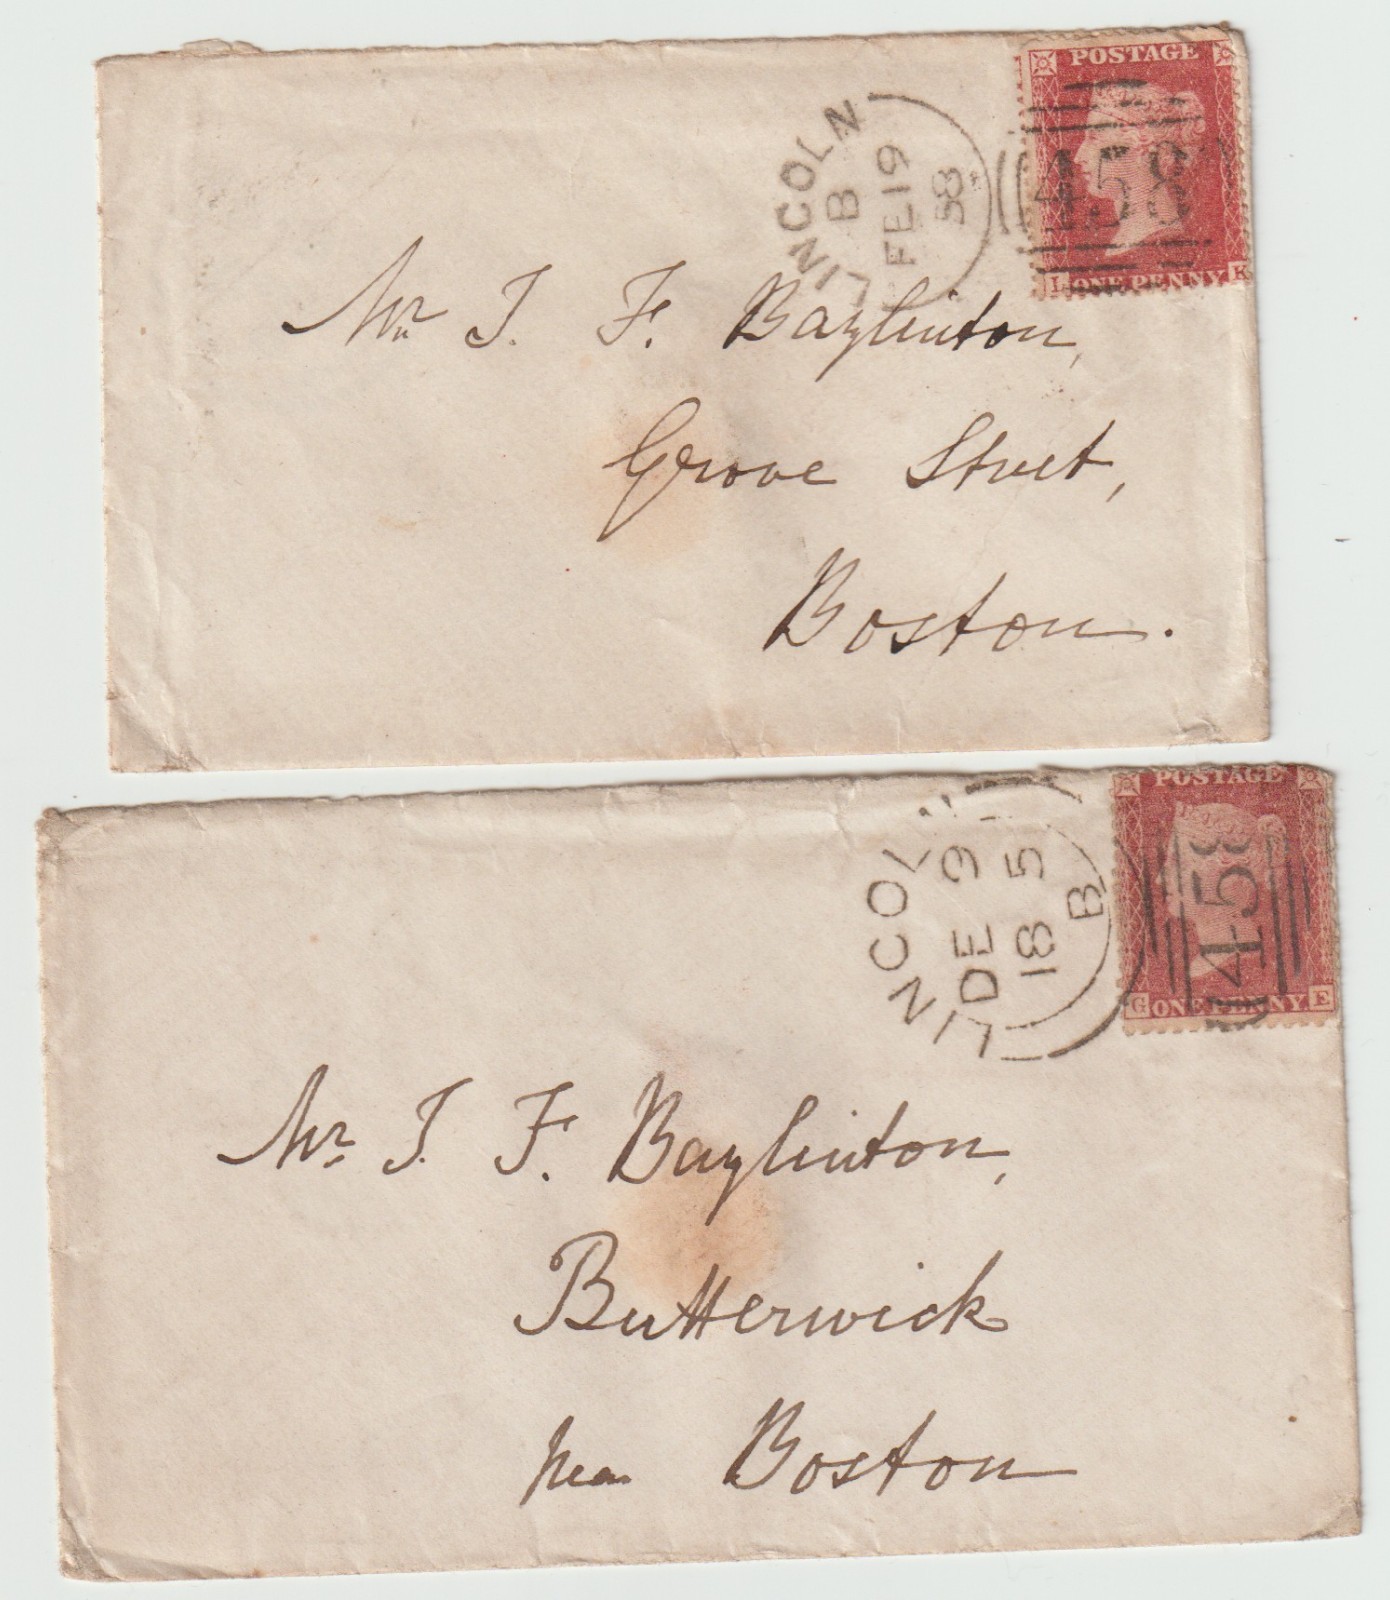 POSTAGE
LINCOLN
B
FE 19
58
458
L ONE PENNY K
Mr J. F. Baylinton,
Grove Street,
Boston.
POSTAGE
LINCOLN
DE 9
18 5
B
458
G ONE PENNY E
Mr. J. F. Baylinton,
Butterwick
near Boston